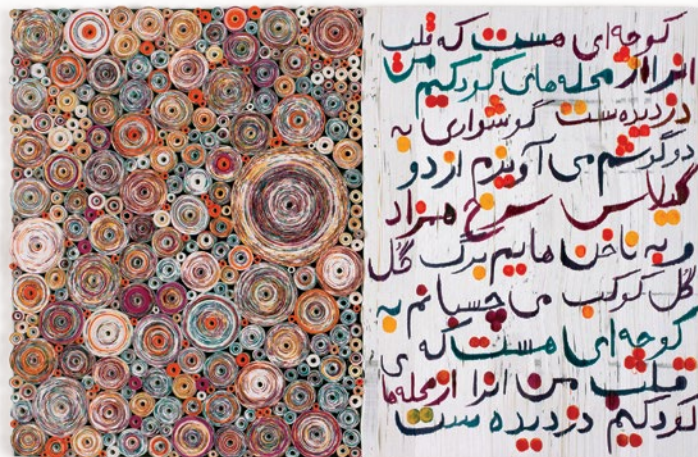 کوچه‌ای هست که قلب
من انرا از محله‌های کودکیم
دزدیده ست گوشواری به
دو گوشم می آویزم از دو
گیلاس سرخ همزاد
و به ناخن هایم برگ گل
گل کوکب می چسبانم به
کوچه‌ای هست که ی
قلب من انرا از محله‌ها
کودکیم دزدیده ست